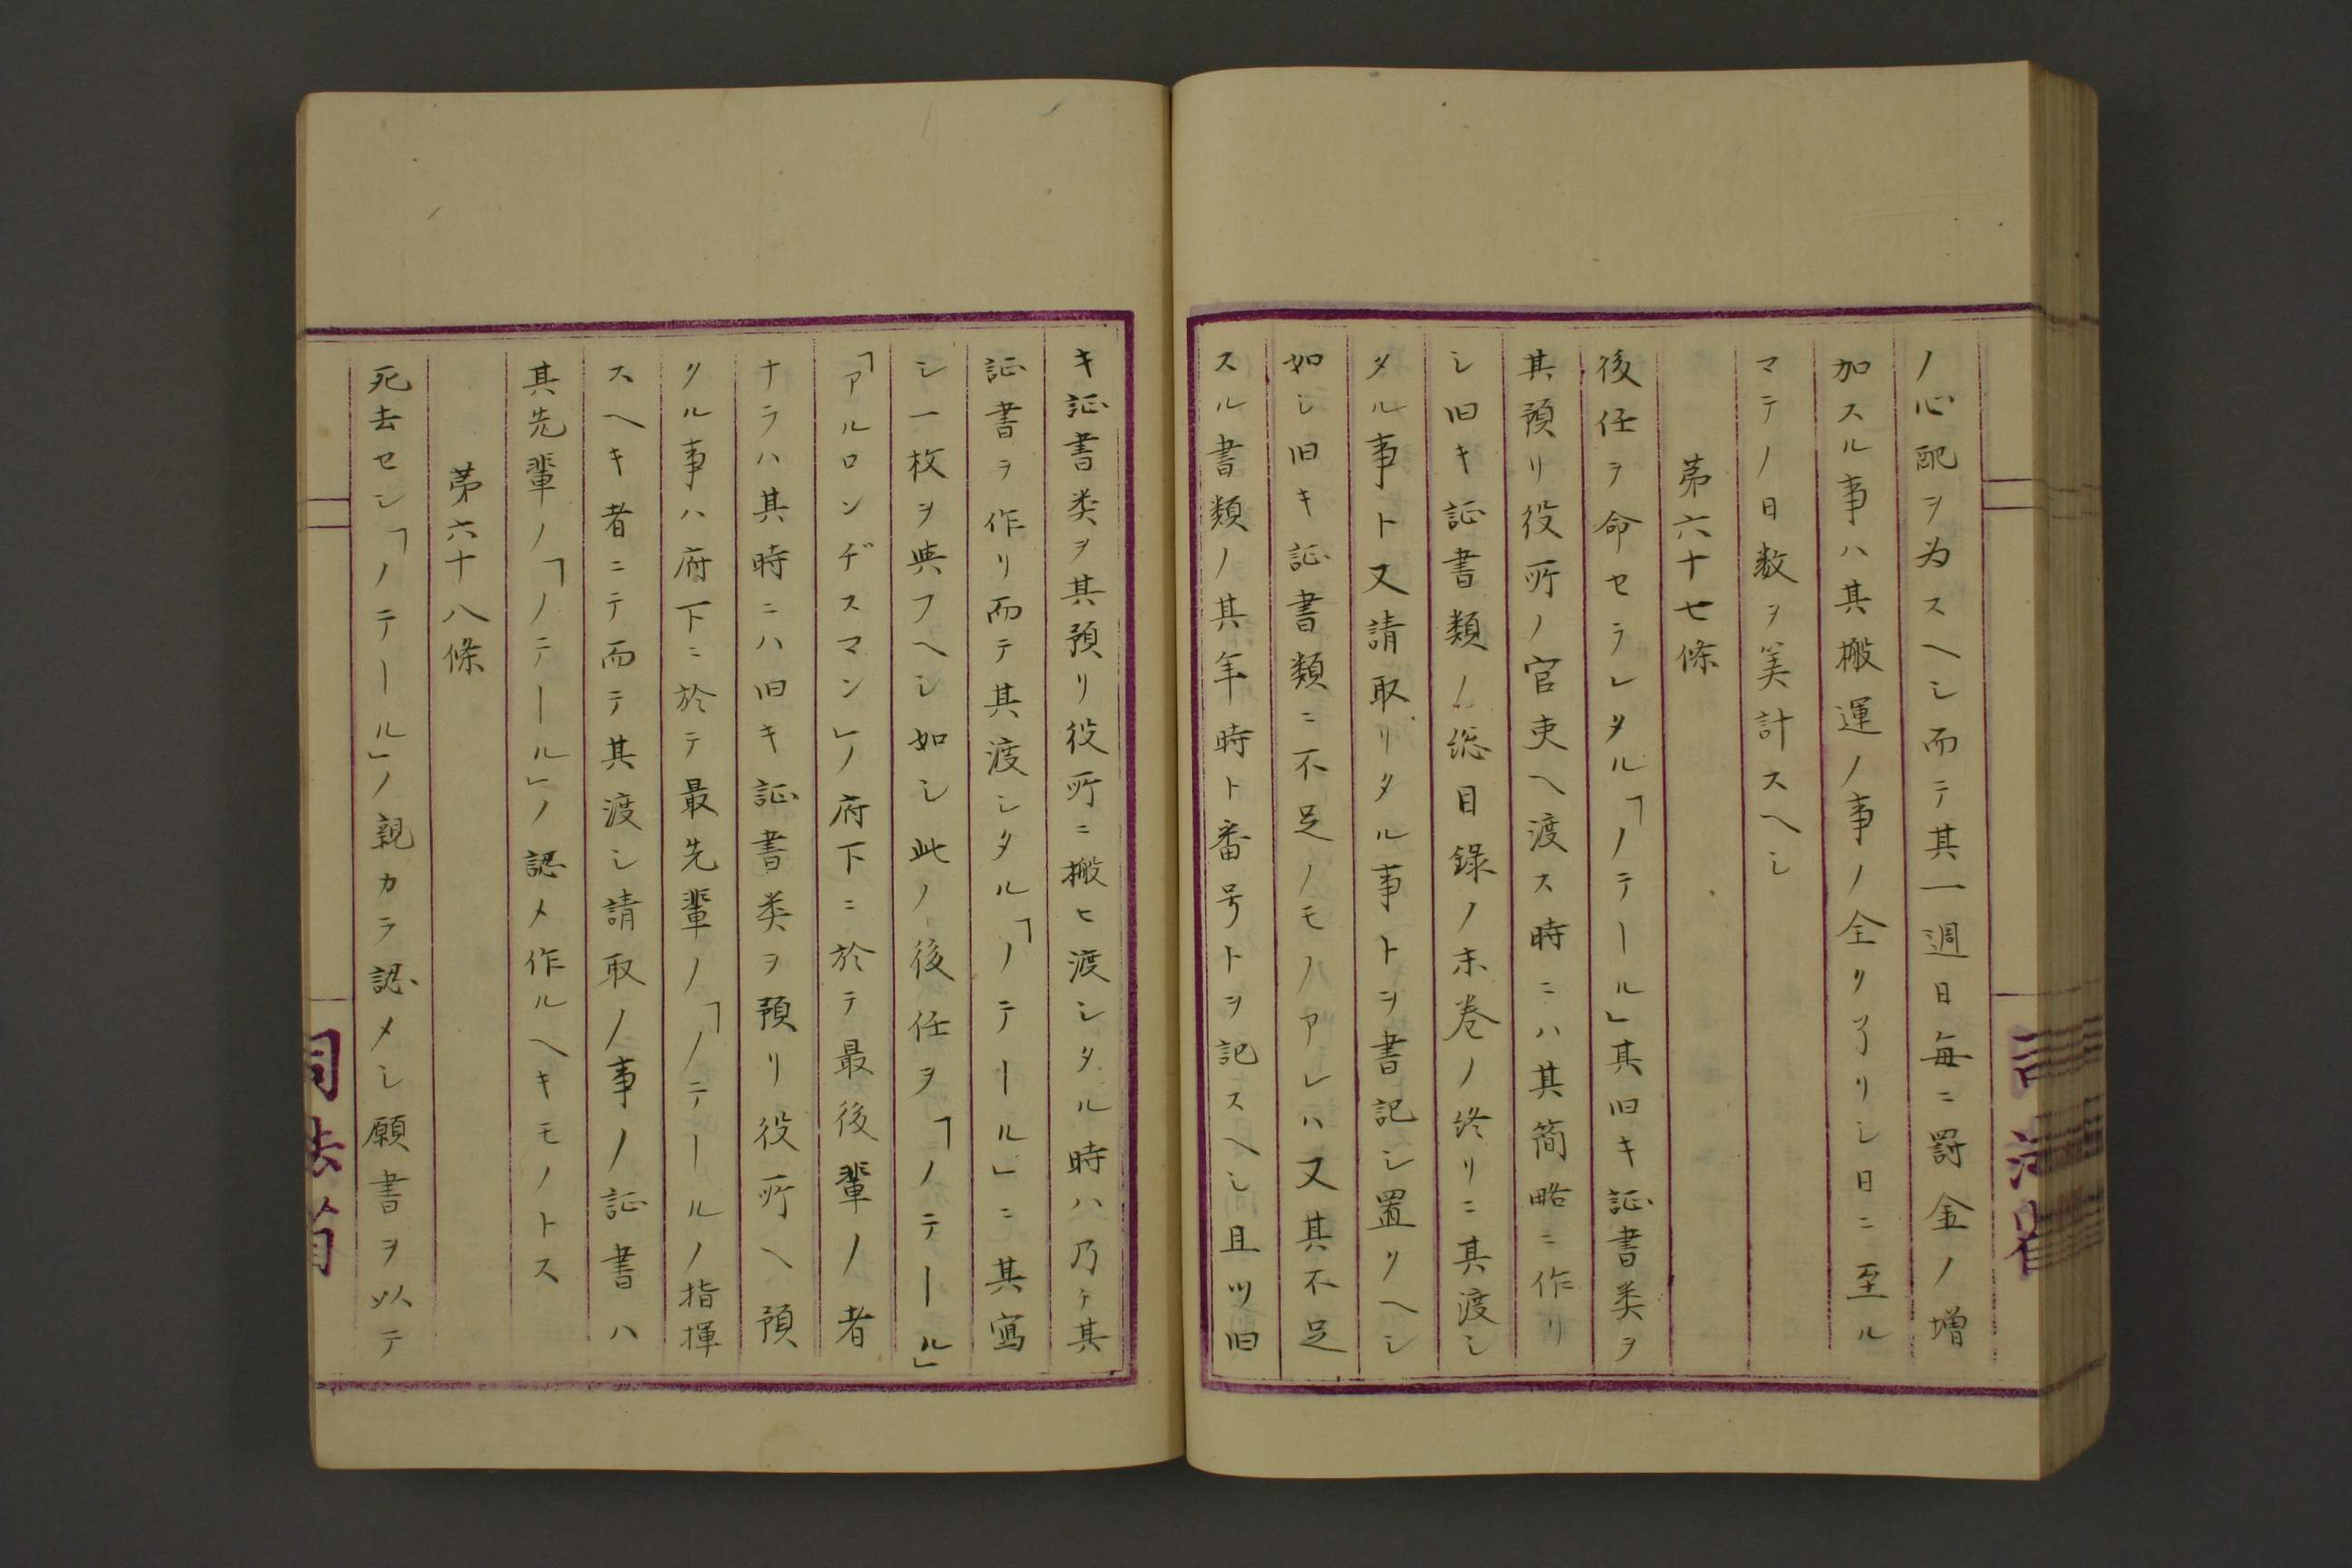 ノ心配ヲ为スヘシ而テ其一週日毎ニ罸金ノ増
加スル事ハ其搬運ノ事ノ全リ了リシ日ニ至ル
マテノ日数ヲ筭計スヘシ
苐六十七條
後任ヲ命セラレタル「ノテール」其旧キ証書类ヲ
其預リ役所ノ官吏ヘ渡ス時ニハ其簡略ニ作リ
シ旧キ証書類ノ総目錄ノ末巻ノ終リニ其渡シ
タル事ト又請取リタル事トヲ書記シ置クヘシ
如シ旧キ証書類ニ不足ノモノアレハ又其不足
スル書類ノ其年時ト番号トヲ記スヘシ且ツ旧
キ証書类ヲ其預リ役所ニ搬ヒ渡シタル時ハ乃ケ其
証書ヲ作リ而テ其渡シタル「ノテール」ニ其寫
シ一枚ヲ與フヘシ如シ此ノ後任ヲ「ノテール」
「アルロンヂスマン」ノ府下ニ於テ最後輩ノ者
ナラハ其時ニハ旧キ証書类ヲ預リ役所ヘ預
クル事ハ府下ニ於テ最先輩ノ「ノテールノ指揮
スヘキ者ニテ而テ其渡シ請取ノ事ノ証書ハ
其先輩ノ「ノテール」ノ認メ作ルヘキモノトス
苐六十八條
死去セシ「ノテール」ノ親カラ認メシ願書ヲ以テ
司法省